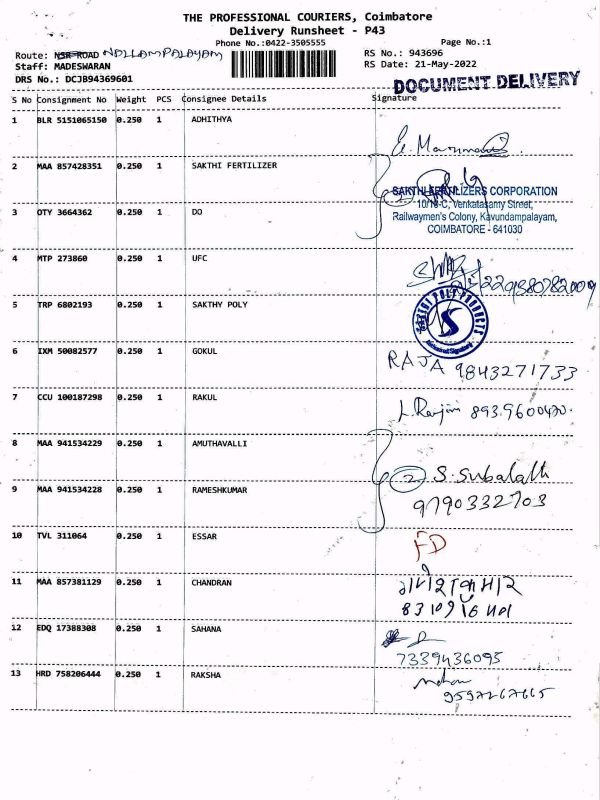 THE PROFESSIONAL COURIERS, Coimbatore
Delivery Runsheet - P43
Phone No.:0422-3505555 Page No.:1
Route: NSR ROAD NALLAMPALAYAM RS No.: 943696
Staff: MADESWARAN RS Date: 21-May-2022
DRS No.: DCJB94369601
DOCUMENT DELIVERY
S No Consignment No Weight PCS Consignee Details Signature
1 BLR 5151065150 0.250 1 ADHITHYA
2 MAA 857428351 0.250 1 SAKTHI FERTILIZER
SAKTHI FERTILIZERS CORPORATION
Venkatasamy Street,
Railwaymen's Colony, Kavundampalayam,
COIMBATORE - 641030
3 OTY 3664362 0.250 1 DO
4 MTP 273860 0.250 1 UFC
5 TRP 6802193 0.250 1 SAKTHY POLY
SAKTHI POLY PRODUCTS
S
6 IXM 50082577 0.250 1 GOKUL
RAJA 9843271733
7 CCU 100187298 0.250 1 RAKUL
8 MAA 941534229 0.250 1 AMUTHAVALLI
2 S. Subalath
9790332703
9 MAA 941534228 0.250 1 RAMESHKUMAR
10 TVL 311064 0.250 1 ESSAR FD
11 MAA 857381129 0.250 1 CHANDRAN
12 EDQ 17388308 0.250 1 SAHANA
7339436095
13 HRD 758206444 0.250 1 RAKSHA
9597267665